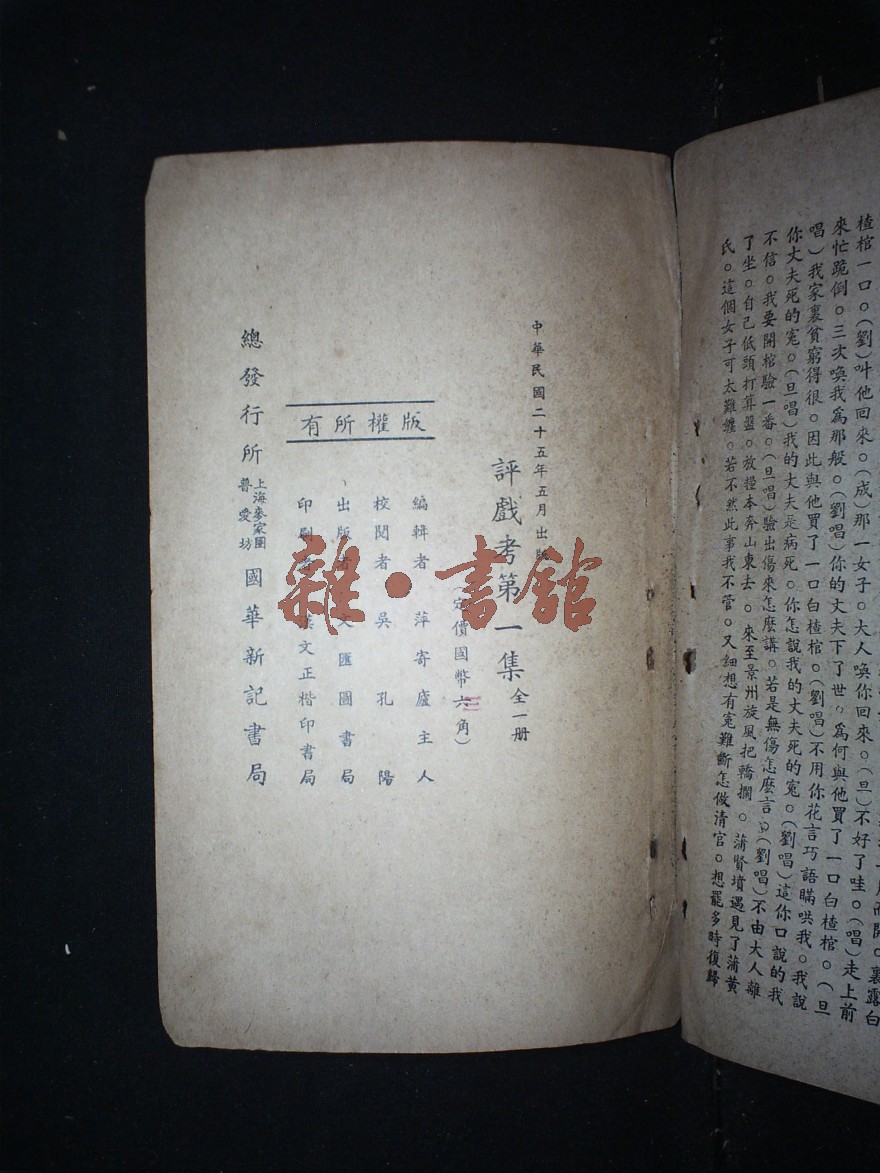 楂棺一口。(劉)叫他回來。(成)那一女子。大人喚你回來。(旦)不好了哇。(唱)走上前
來忙跪倒。三次喚我爲那般。(劉唱)你的丈夫下了世。爲何與他買了一口白楂棺。(旦
唱)我家裏貧窮得很。因此與他買了一口白楂棺。(劉唱)不用你花言巧語瞞哄我。我說
你丈夫死的寃。(旦唱)我的丈夫是病死。你怎說我的丈夫死的寃。(劉唱)這你口說的我
不信。我要開棺驗一番。(旦唱)驗出傷來怎麼講。若是無傷怎麼言。(劉唱)不由大人離
了坐。自己低頭打算盤。放糧本奔山東去。來至景州旋風把轎攔。蒲賢墳遇見了蒲黃
氏。這個女子可太難纏。若不然此事我不管。又細想有寃難斷怎做清官。想罷多時復歸
中華民國二十五年五月出版
評戲考第一集 全一册
(定價國幣六角)
三
版權所有
編輯者 萍寄廬主人
校閱者 吳孔陽
出版者 文匯圖書局
印刷者 漢文正楷印書局
總發行所 上海麥家圈普愛坊 國華新記書局
雜·書館